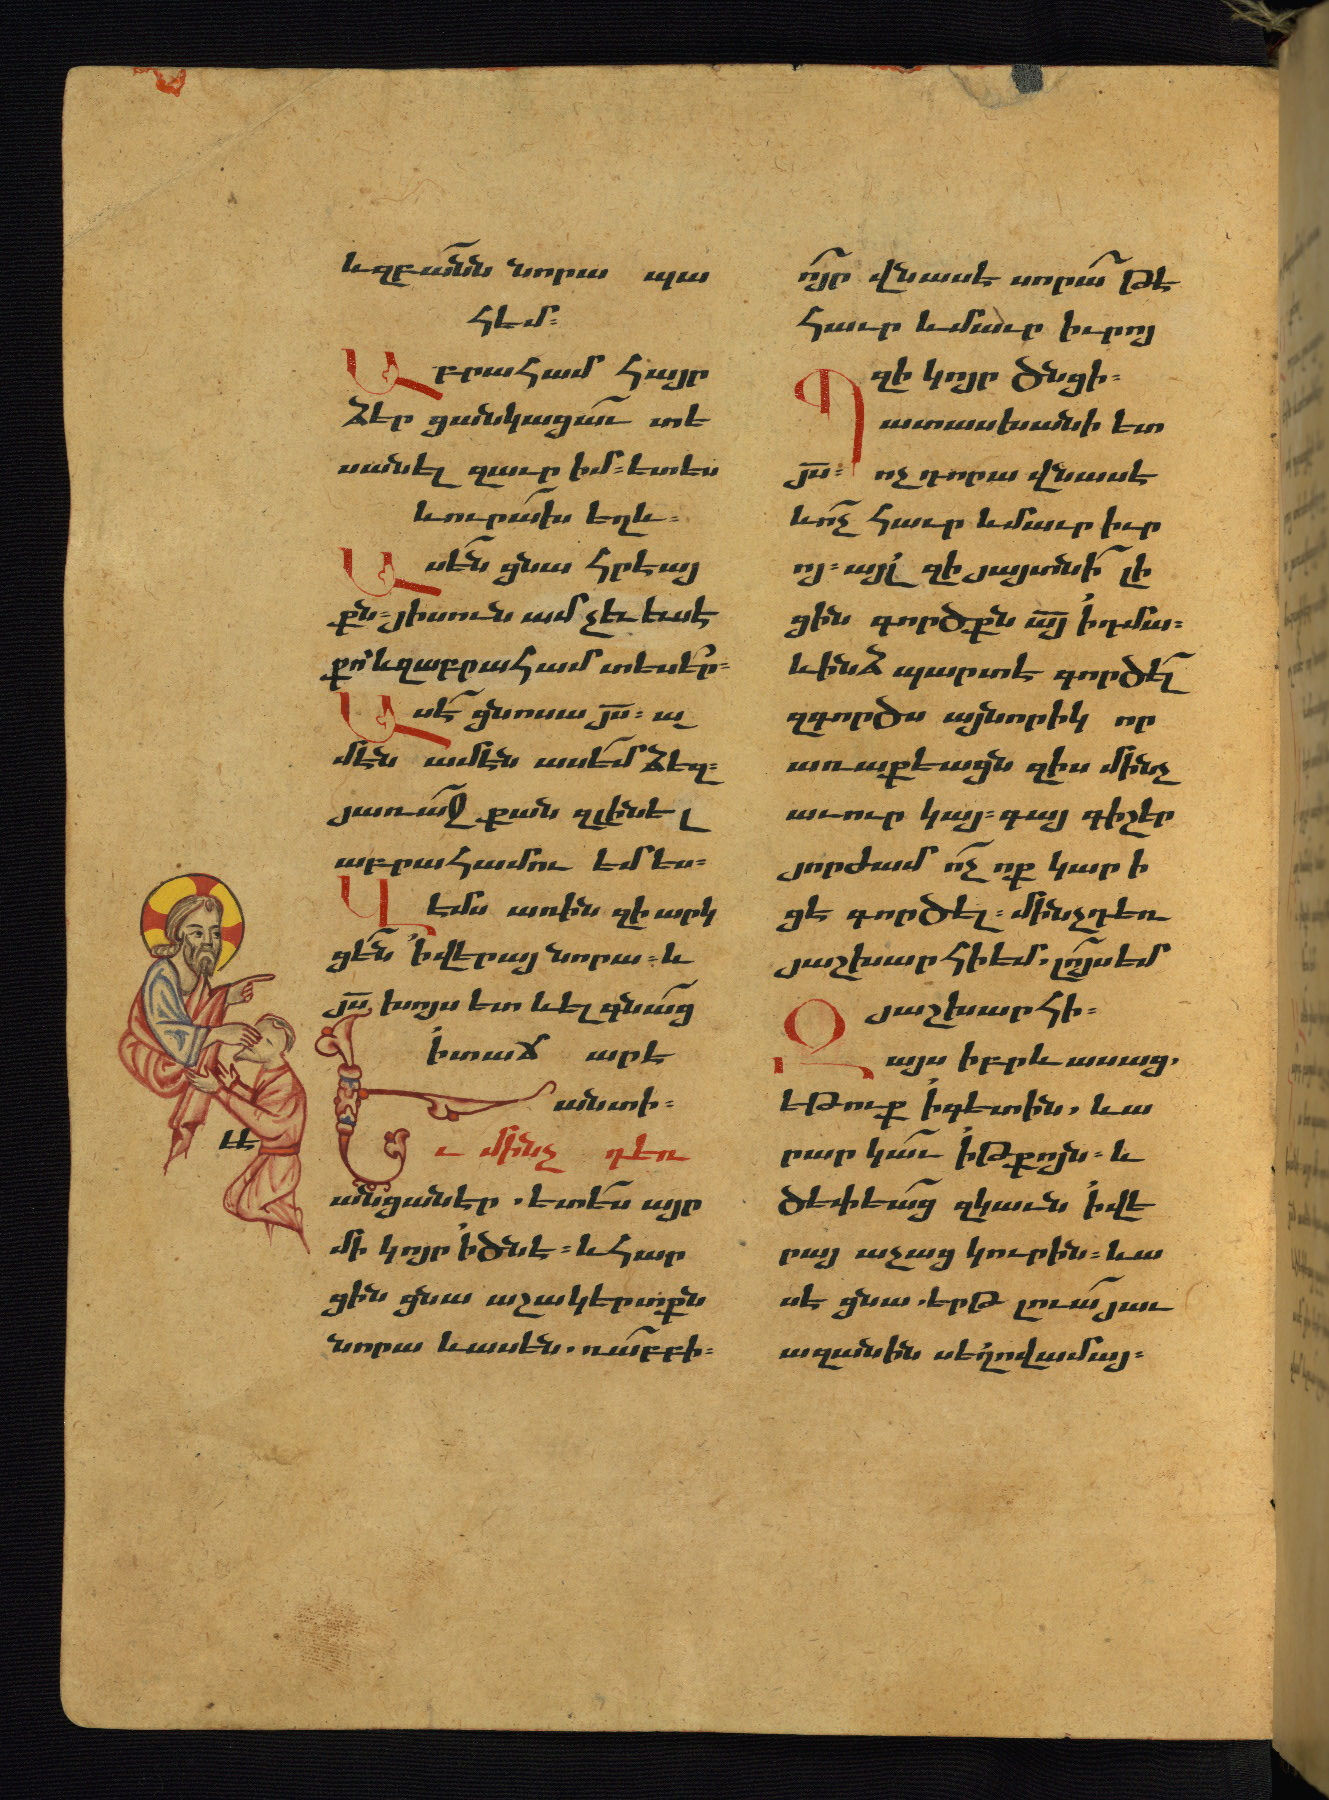 և զբա՟նն նորա պա
հեմ։
Աբրահամ հայր
ձեր ցանկացա՟ւ տե
սանել զաւր իմ։ ետես
և ուրա՟խ եղև։
Ասե՟ն ցնա հրեայ
քն։ յիսուն ամ չեւ եւս է
քո՟ և զաբրահամ տեսե՟ր։
Ասէ՟ ցնոսա յս՟։ ա
մէն ամէն ասեմ ձեզ։
յառա՟ջ քան զլինել
աբրահամու եմ ես։
Վէմս առին զի արկ
ցե՟ն ՛ի վերայ նորա։ և
յս՟ խոյս ետ և ել գնա՟ց
՛ի տաճարէ
անտի։
Եւ մինչ դեռ
անցանէր, ետե՟ս այր
մի կոյր ՛ի ծնէ։ և հար
ցին ցնա աշակերտքն
նորա և ասեն, ռա՟բբի։
ո՟յր վնաս է սորա՟ թէ
հաւր և մաւր իւրոյ
զի կոյր ծնցի։
Պատասխանի ետ
յս՟։ ոչ դորա վնաս է
և ո՟չ հաւր և մաւր իւր
ոյ։ այլ զի յայտնի՟ լի
ցին գործքն ա՟յ ՛ի դմա։
և ինձ պարտ է գործե՟լ
զգործս այնորիկ որ
առաքեացն զիս մինչ
աւուր կայ։ գայ գիշեր
յորժամ ո՟չ ոք կարի
ցէ գործել։ մինչդեռ
յաշխարհի եմ, լո՟յս եմ
յաշխարհի։
Զայս իբրև ասաց,
եթուք ՛ի գետին, և ա
րար կա՟ւ ՛ի թքոյն։ և
ծեփեա՟ց զկաւն ՛ի վե
րայ աչաց կուրին։ և ա
սէ ցնա, երթ լուա՟ յաւ
ազանին սեղովամայ։